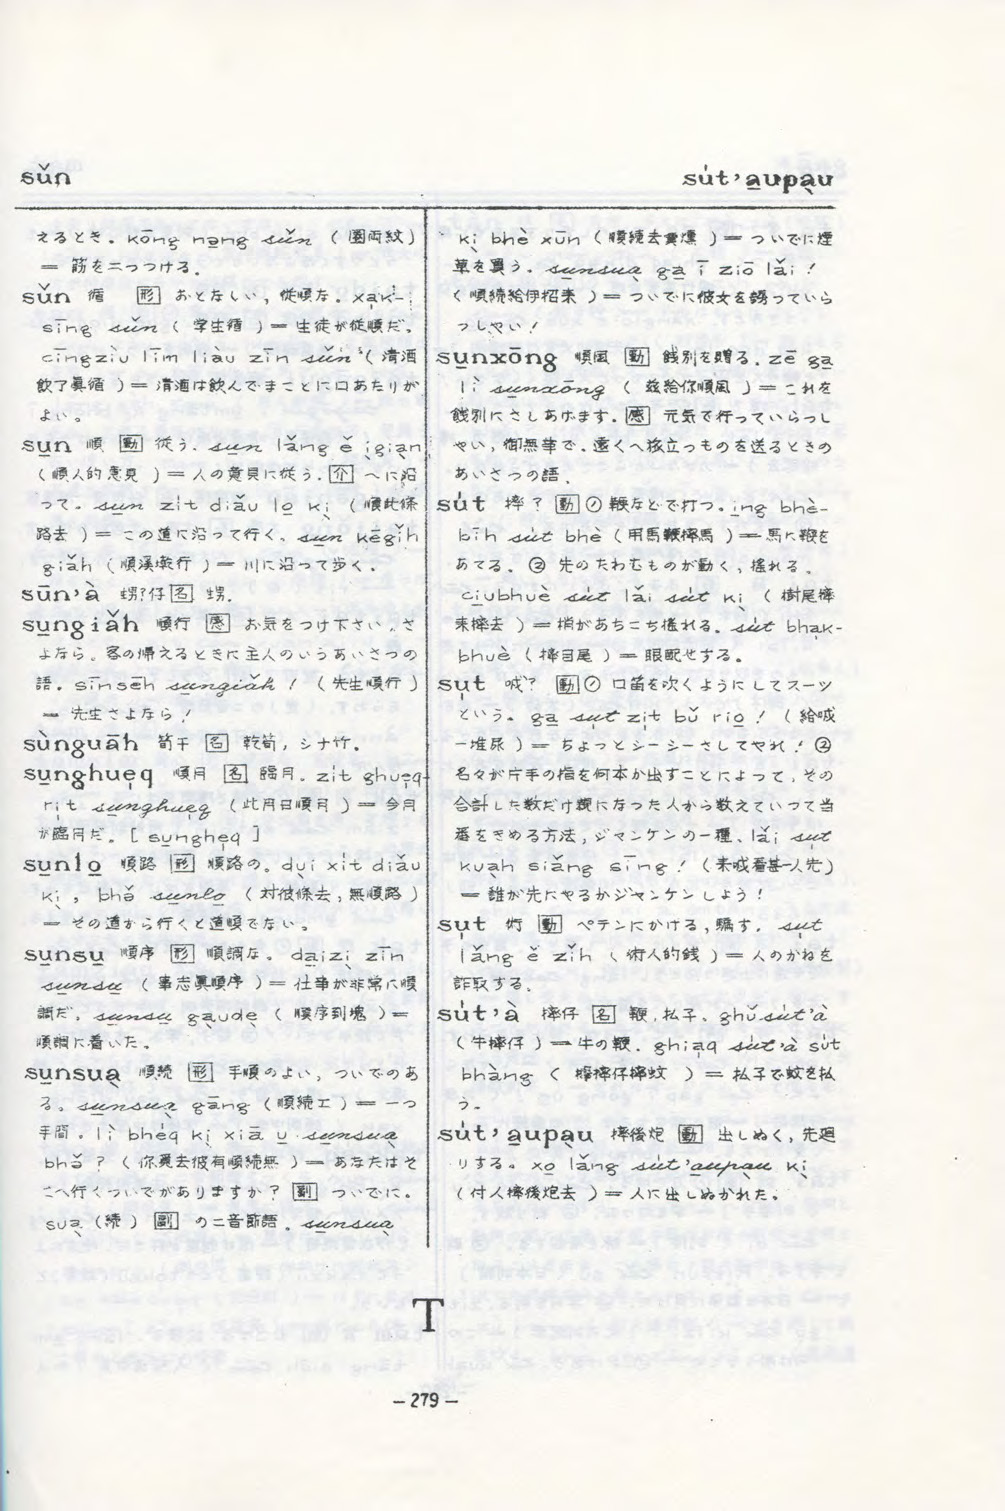 sŭn
sút'a̱upa̱u
えるとき。kōng nəng sŭn（圏両紋）
＝筋を二つつける。
sŭn 循 形 おとなしい，従順な。xa̍k-
sīng sŭn（学生循）＝生徒が従順だ。
cīngziù līm liàu zīn sŭn（清酒
飲了真循）＝清酒は飲んでまことに口あたりが
よい。
su̱n 順 動 従う．su̱n lăng ĕ ìgiạn
（順人的意見）＝人の意見に従う．介 へに沿
って。su̱n zi̍t diău lo̱ kị（順此條
路去）＝この道に沿って行く．su̱n kēgǐh
giăh（順溪墘行）＝川に沿って歩く．
sūn'à 甥?仔 名 甥．
su̱ngiăh 順行 感 お気をつけ下さい，さ
よなら。客の帰えるときに主人のいうあいさつの
語．sīnsēh su̱ngiăh！（先生順行）
＝先生さよなら！
sùnguāh 筍干 名 乾筍，シナ竹．
su̱nghuẹq 順月 名 臨月．zi̍t ghuẹq-
ri̍t su̱nghuẹq（此月日順月）＝今月
が臨月だ．[ su̱nghẹq ]
su̱nlo̱ 順路 形 順路の。dụi xi̍t diău
kị，bhŏ su̱nlo̱（対彼條去，無順路）
＝その道から行くと道順でない。
su̱nsu̱ 順序 形 順調な。da̱izị zīn
su̱nsu̱（事志真順序）＝仕事が非常に順
調だ．su̱nsu̱ gạude̱（順序到塊）＝
順調に着いた。
su̱nsuạ 順続 形 手順のよい，ついでのあ
る。su̱nsuạ gāng（順続工）＝一つ
手間。lì bhéq kị xiā u̱ su̱nsuạ
bhŏ？（你要去彼有順続無）＝あなたはそ
こへ行くついでがありますか？ 副 ついでに。
suạ（続）副 の二音節語。su̱nsuạ
kị bhè xūn（順続去買燻）＝ついでに煙
草を買う．su̱nsuạ ga̱ ī ziō lăi！
（順続給伊招来）＝ついでに彼女を誘っていら
っしゃい！
su̱nxōng 順風 動 餞別を贈る．zē ga̱
lì su̱nxōng（茲給你順風）＝これを
餞別にさしあげます．感 元気で行っていらっし
ゃい，御無事で．遠くへ旅立つものを送るときの
あいさつの語．
sút 摔？ 動 ① 鞭などで打つ。ịng bhè-
bīh sút bhè（用馬鞭摔馬）＝馬に鞭を
あてる．② 先のたわむものが動く，搖れる．
ciubhuè sút lăi sút kị（樹尾摔
来摔去）＝梢があちこち搖れる．sút bhak-
bhuè（摔目尾）＝眼配せする。
su̍t 㖅？ 動 ① 口笛を吹くようにしてスーツ
という。ga̱ su̍t zi̍t bŭ rio̱！（給㖅
一堆尿）＝ちょっとシーシーさしてやれ！②
名々が片手の指を何本か出すことによって，その
合計した数だけ親になった人から数えていって当
番をきめる方法，ジャンケンの一種．lăi su̍t
kuạh siăng sīng！（来㖅看甚人先）
＝誰が先にやるかジャンケンしよう！
su̍t 術 動 ペテンにかける，騙す．su̍t
lăng ĕ zǐh（術人的銭）＝人のかねを
詐取する．
sút'à 摔仔 名 鞭，払子．ghŭ sút'à
（牛摔仔）＝牛の鞭．ghiaq sút'à sút
bhàng（摔仔摔蚊）＝払子で蚊を払
う．
sút'a̱upạu 摔後炮 動 出しぬく，先廻
りする。xo̱ lăng sút'a̱upạu kị
（付人摔後炮去）＝人に出しぬかれた。
T
－279－